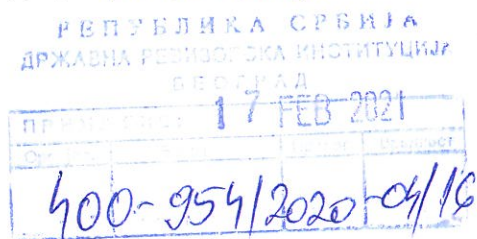 РЕПУБЛИКА СРБИЈА
ДРЖАВНА РЕВИЗОРСКА ИНСТИТУЦИЈА
БЕОГРАД
17 FEB 2021
400-954/2020-04/16